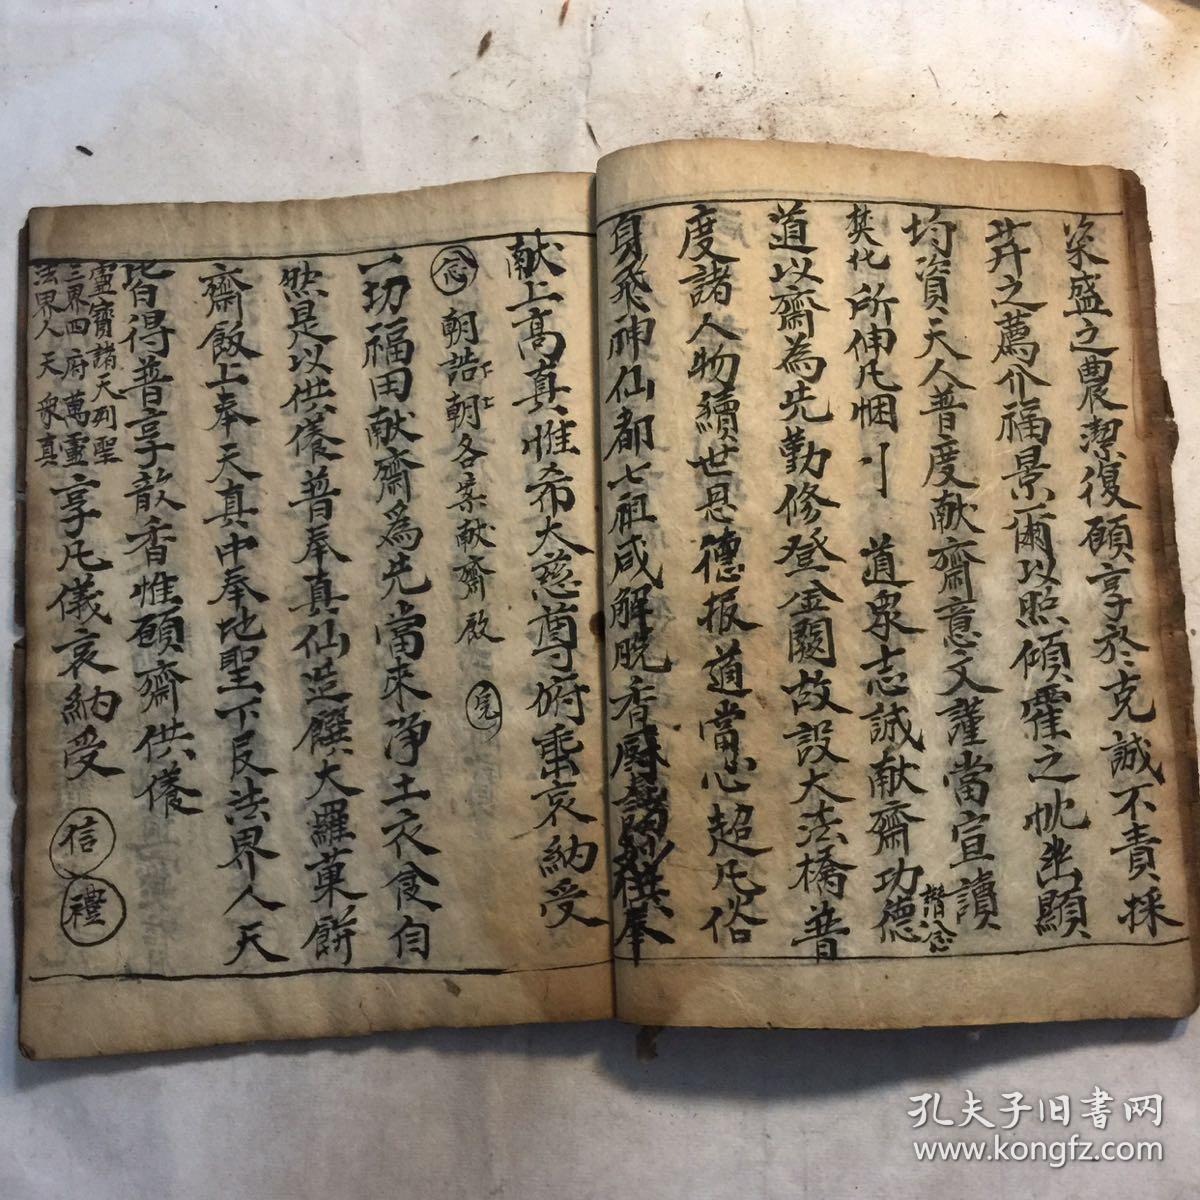 粢盛之農潔復願享於克誠不責採
芹之薦介福景爾以照傾霍之忱幽顯
均資天人普度献齋意文謹當宣讀
焚化所伸凡悃 道眾志誠献齋功德
讚念
道以齋為先勤修登金闕故設大法橋普
度諸人物續世恩德报道當心超凡俗
身飛神仙都七祖咸解脫香厨 供奉
献上高真惟希大慈尊俯垂哀納受
念 朝誥上朝上各案献齋啟 完
一切福田献齋為先當来净土衣食自
然是以供養普奉真仙造饌大羅菓餅
齋飯上奉天真中奉地聖下及法界人天
皆得普享歆香惟願齋供養
靈寶諸天列聖
三界四府萬靈
法界人天衆真
享凡儀哀納受 信禮
孔夫子旧书网
www.kongfz.com